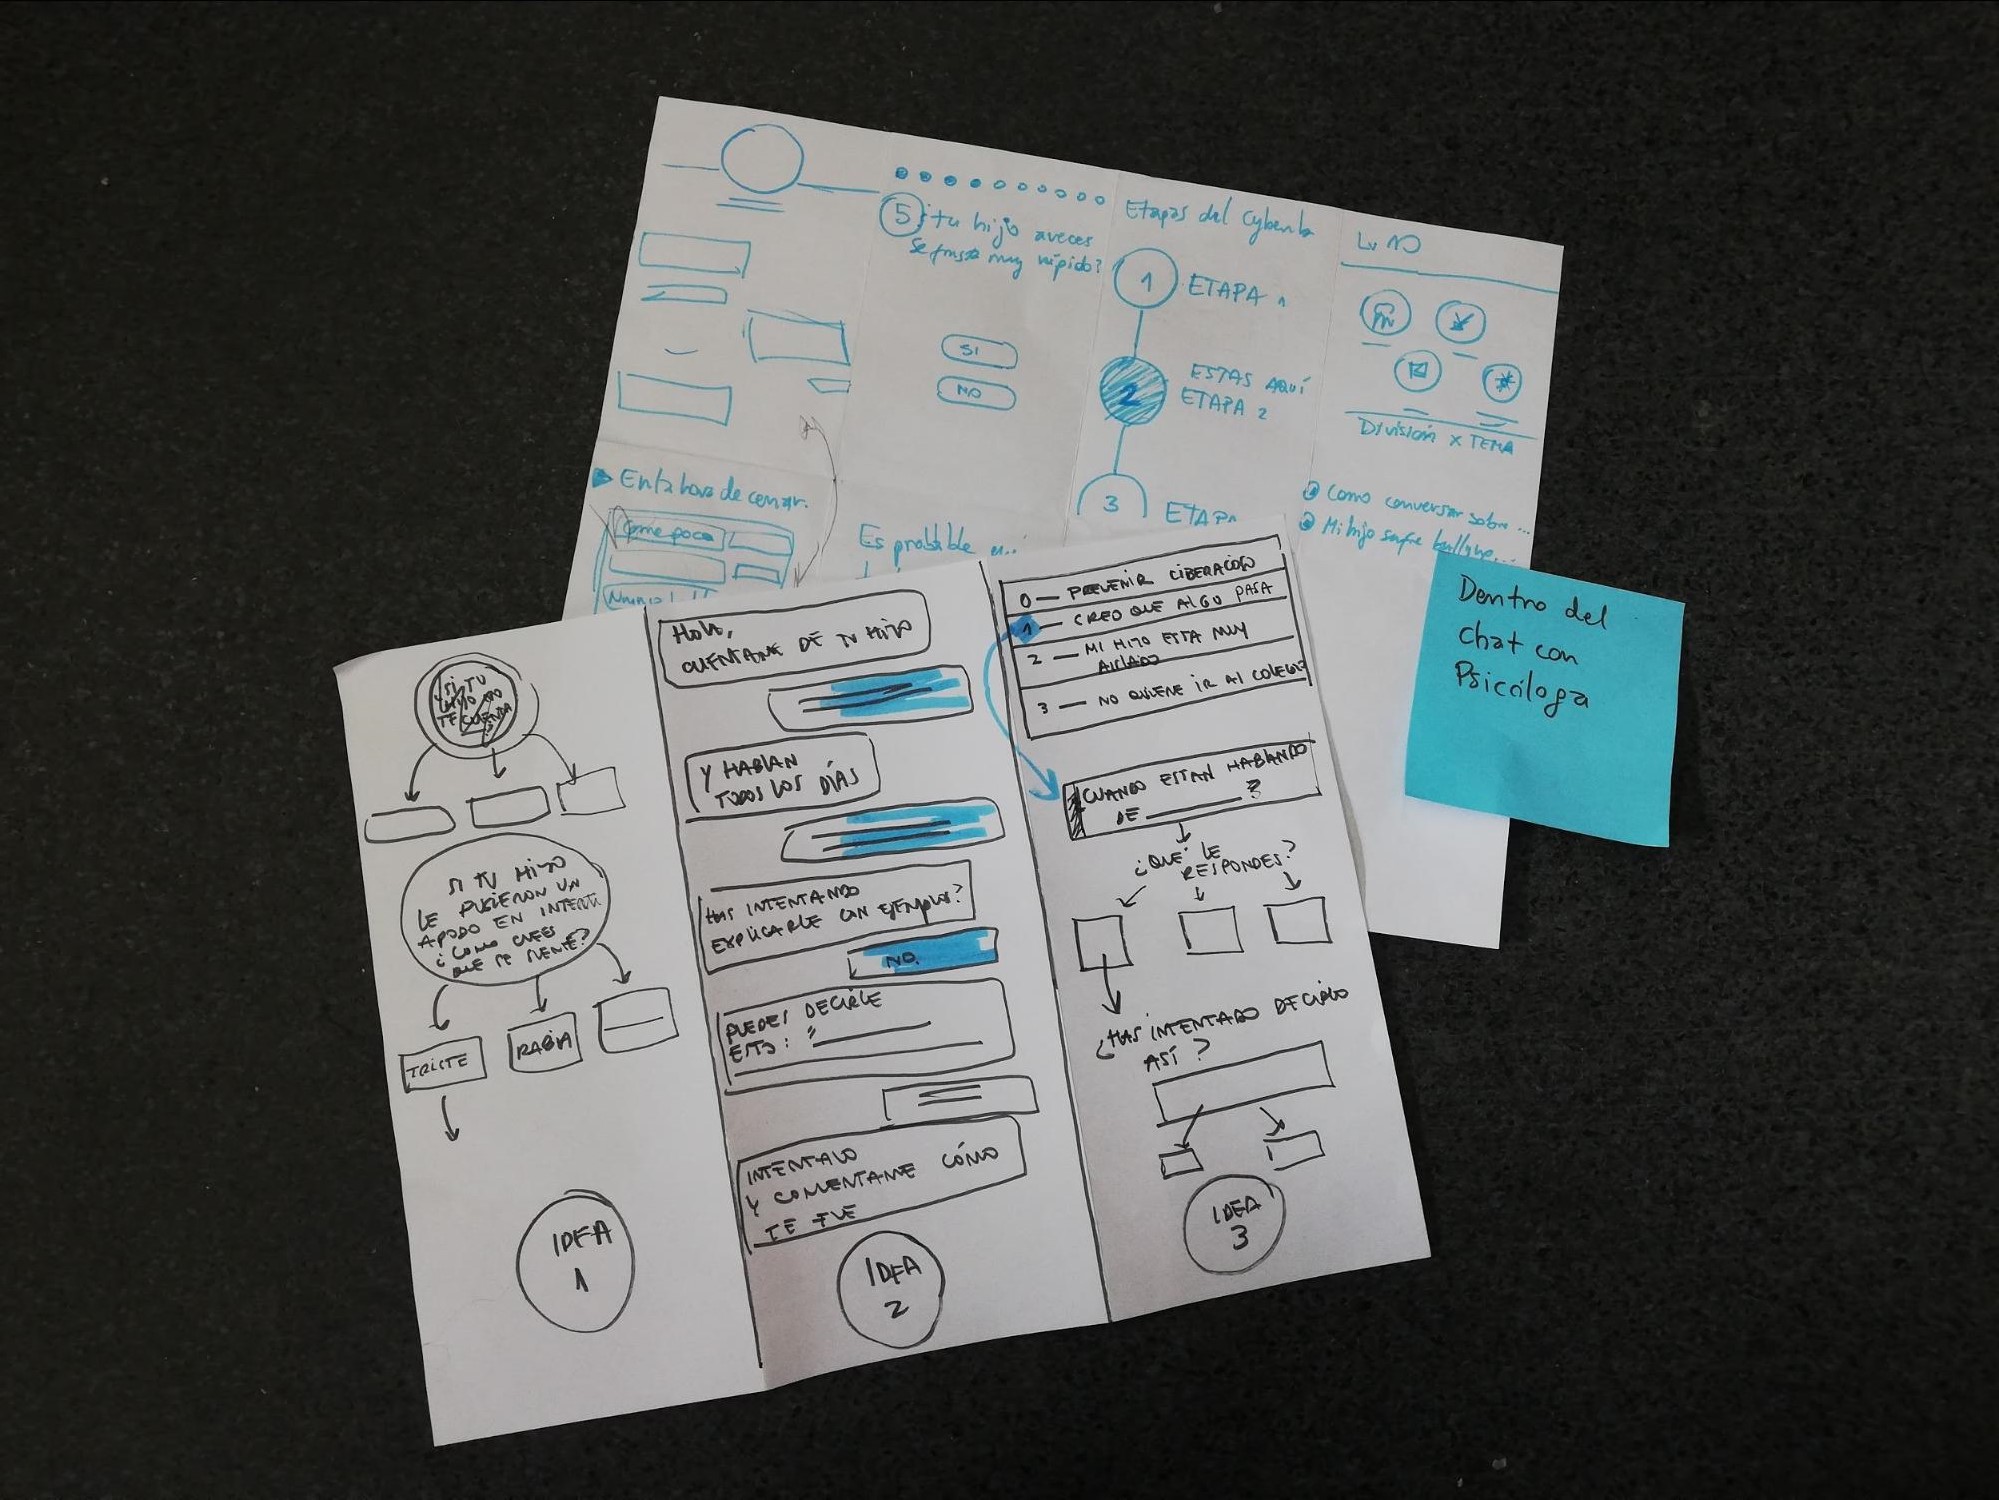 5 ¿tu hijo aveces
se frustra muy rápido?
SI
NO
Etapas del Cyberb
1 ETAPA 1
ESTAS AQUÍ
2 ETAPA 2
3 ETAPA
Lv 10
División x TEMA
En la hora de cenar.
Come poco
Es probable
Como conversar sobre ...
Mi hijo sufre bullying...
Dentro del
chat con
Psicóloga
SI TU
HIJO
TE CUENTA
SI TU HIJO
LE PUSIERON UN
APODO EN INTERNET
¿COMO CREES
QUE SE SIENTE?
TRISTE
RABIA
IDEA
1
HOLA,
CUENTAME DE TU HIJO
Y HABLAN
TODOS LOS DÍAS
HAS INTENTANDO
EXPLICARLE CON EJEMPLOS?
NO.
PUEDES DECIRLE
ESTO:
INTENTALO
Y COMENTAME CÓMO
TE FUE
IDEA
2
0 — PREVENIR CIBERACOSO
1 — CREO QUE ALGO PASA
2 — MI HIJO ESTA MUY
AISLADO
3 — NO QUIERE IR AL COLEGIO
CUANDO ESTAN HABLANDO
DE ______ ?
¿QUÉ LE
RESPONDES?
¿HAS INTENTADO DECIRLO
ASÍ?
IDEA
3